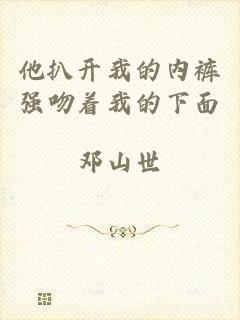 他扒开我的内裤
强吻着我的下面
邓山世